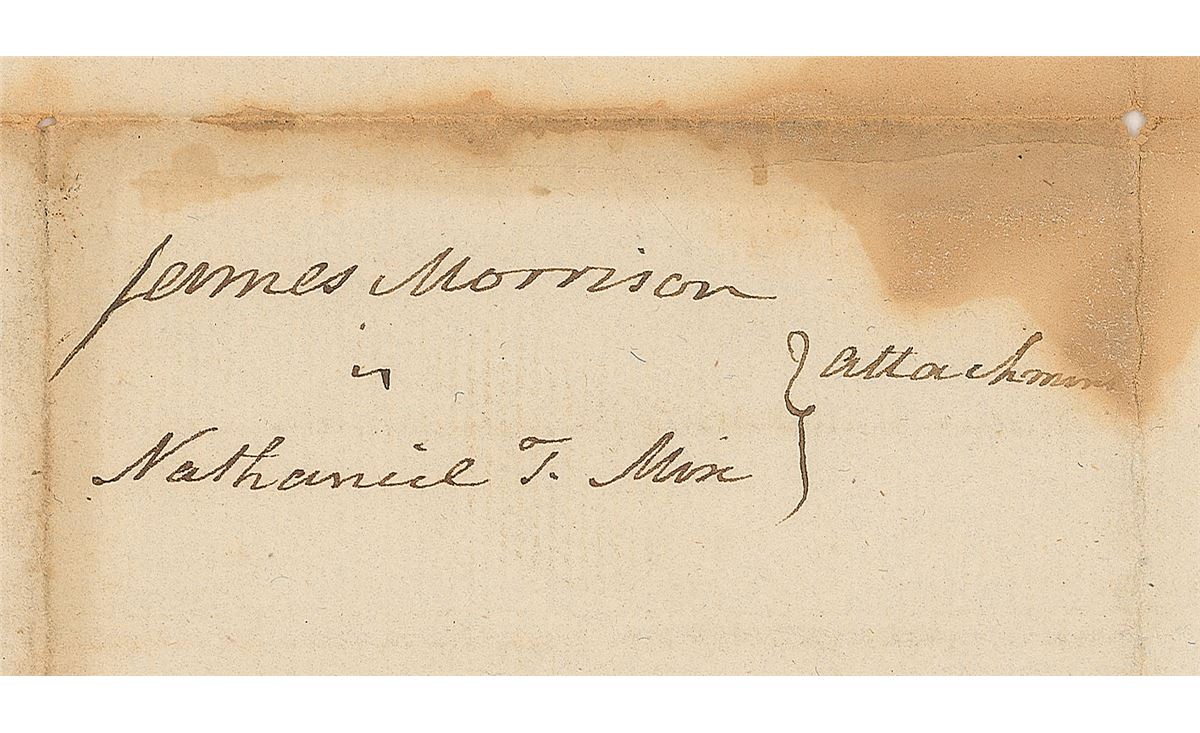 James Morrison
vs
Nathaniel T. Mix
} Attachment